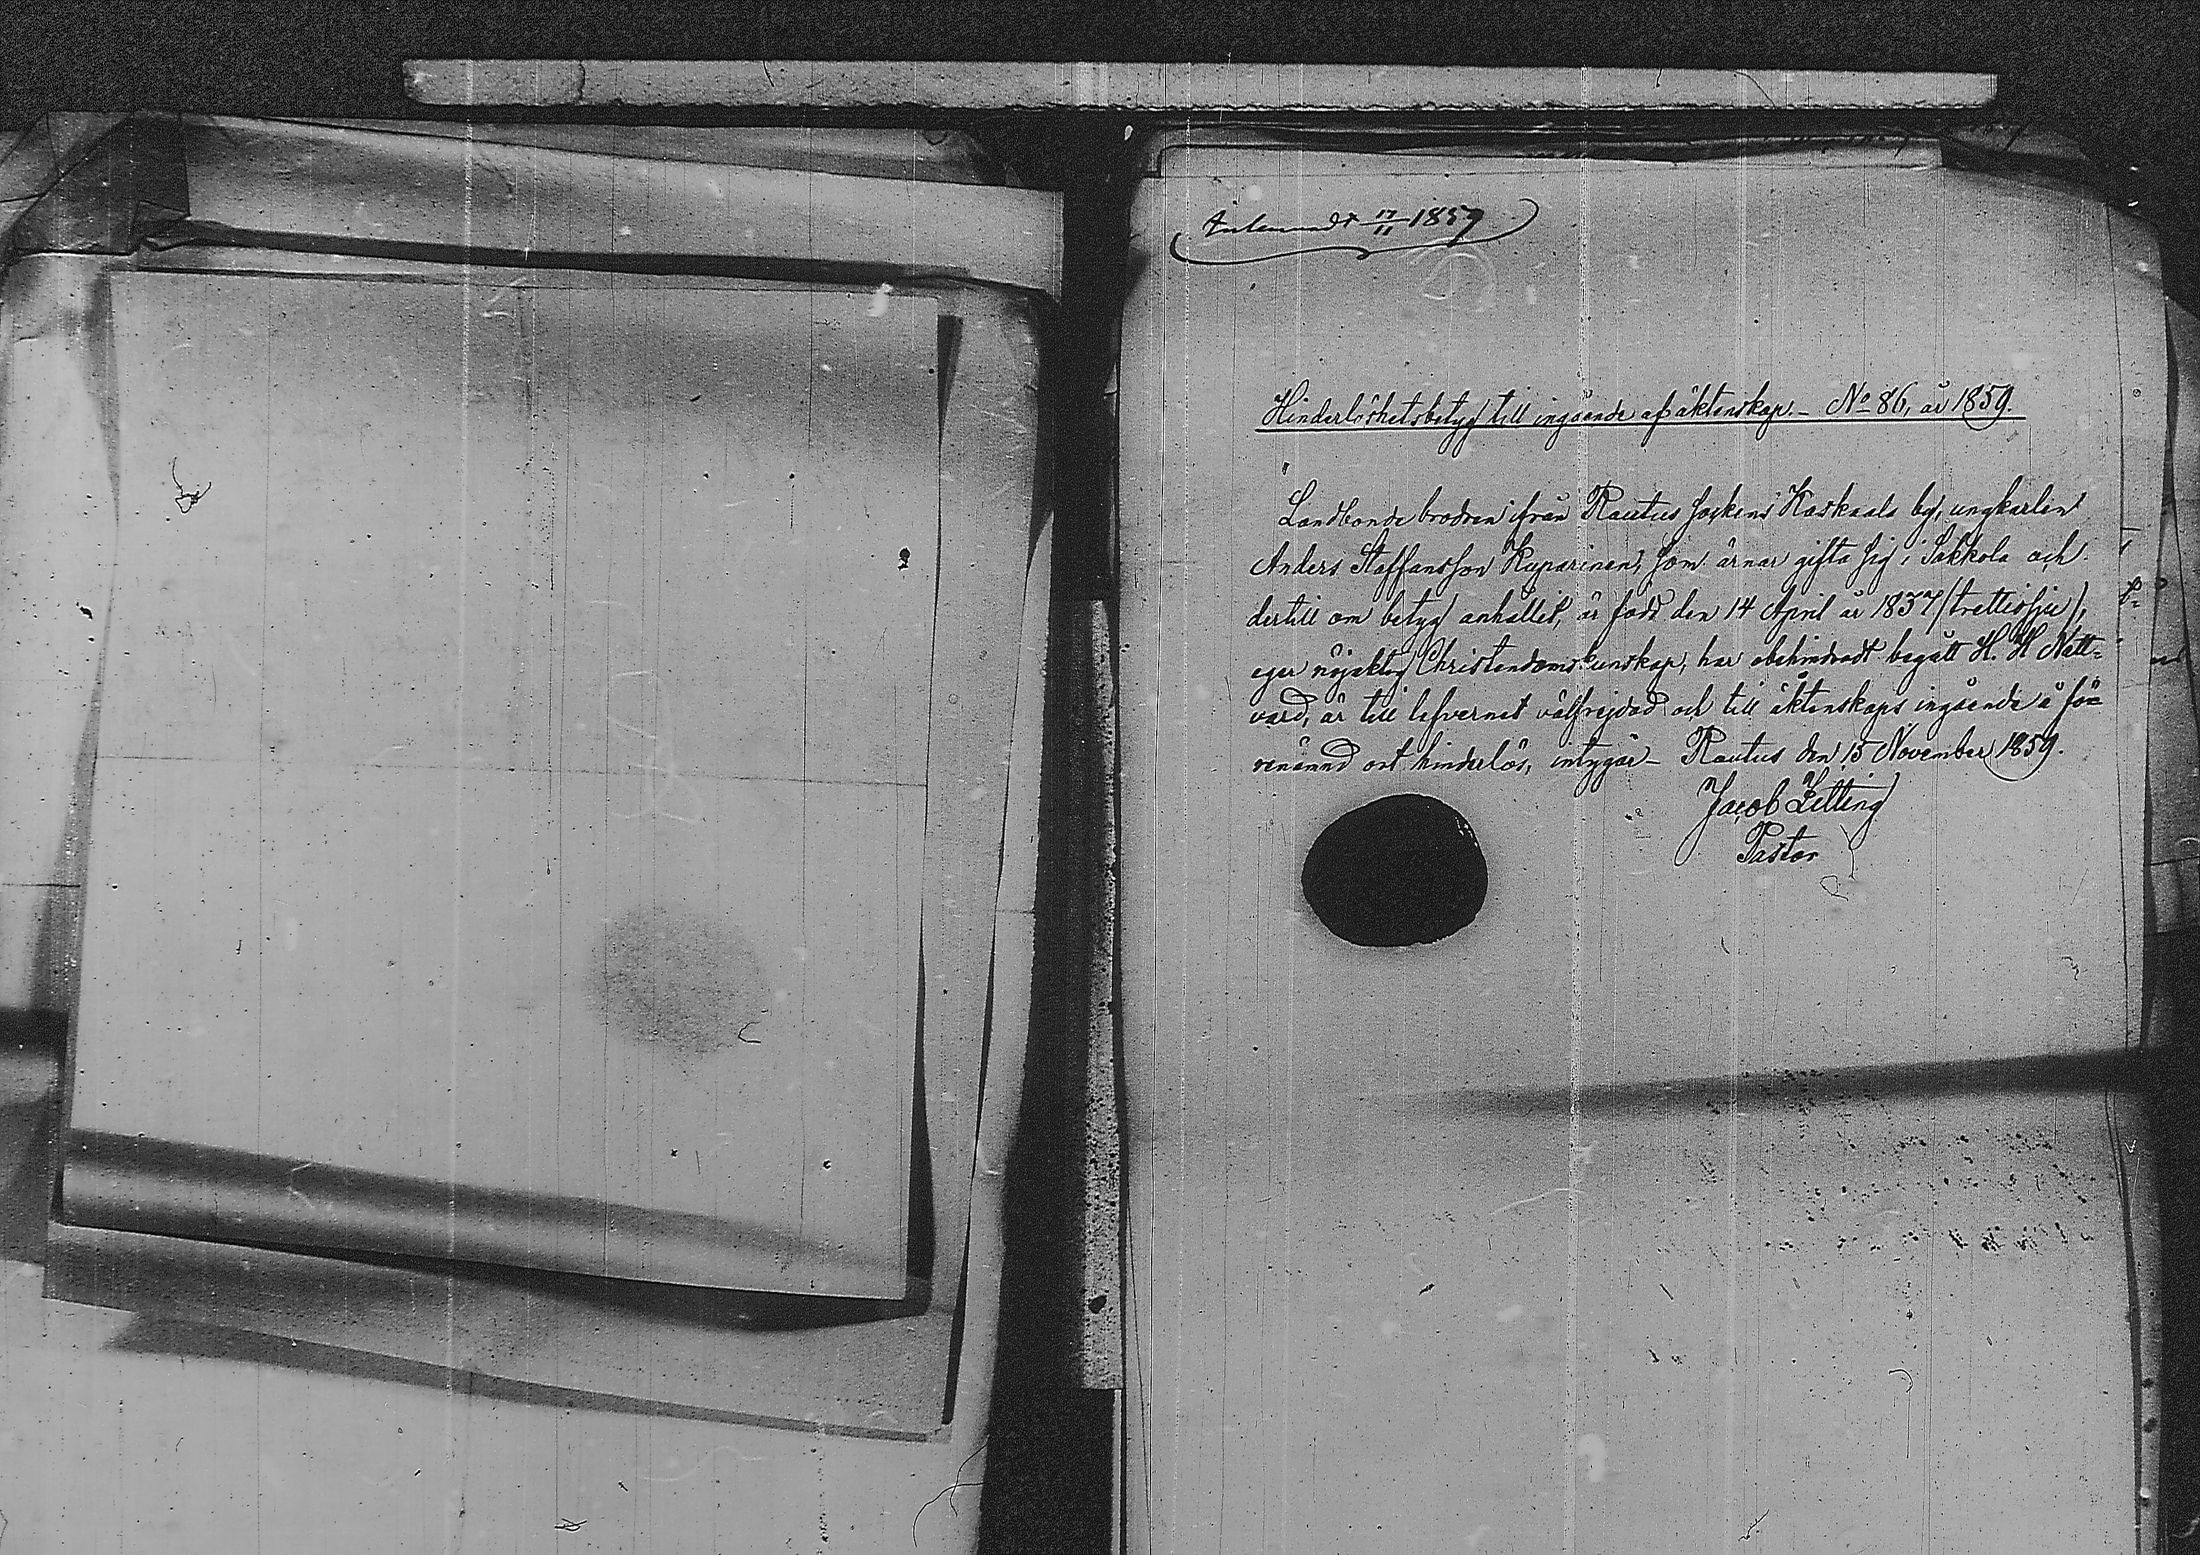 Inlemnadt 17/11 1859
Hinderlöshetsbetyg till ingående af äktenskap. – No 86, år 1859.
Landbonde brodren ifrån Rautus Sockens Kaskaala by, ungkarlen
Anders Staffansson Kuparinen, som ärnar gifta sig i Sakkola och
dertill om betyg anhållit, är född den 14 April år 1837 /trettiosju/,
eger nöjaktig Christendomskunskap, har obehindradt begått H. H. Natt=
vard, är till lefvernet välfrejdad och till äktenskaps ingående å fö=
renämnd ort hinderlös, intygar – Rautus den 15 November 1859.
Jacob Zitting
Pastor